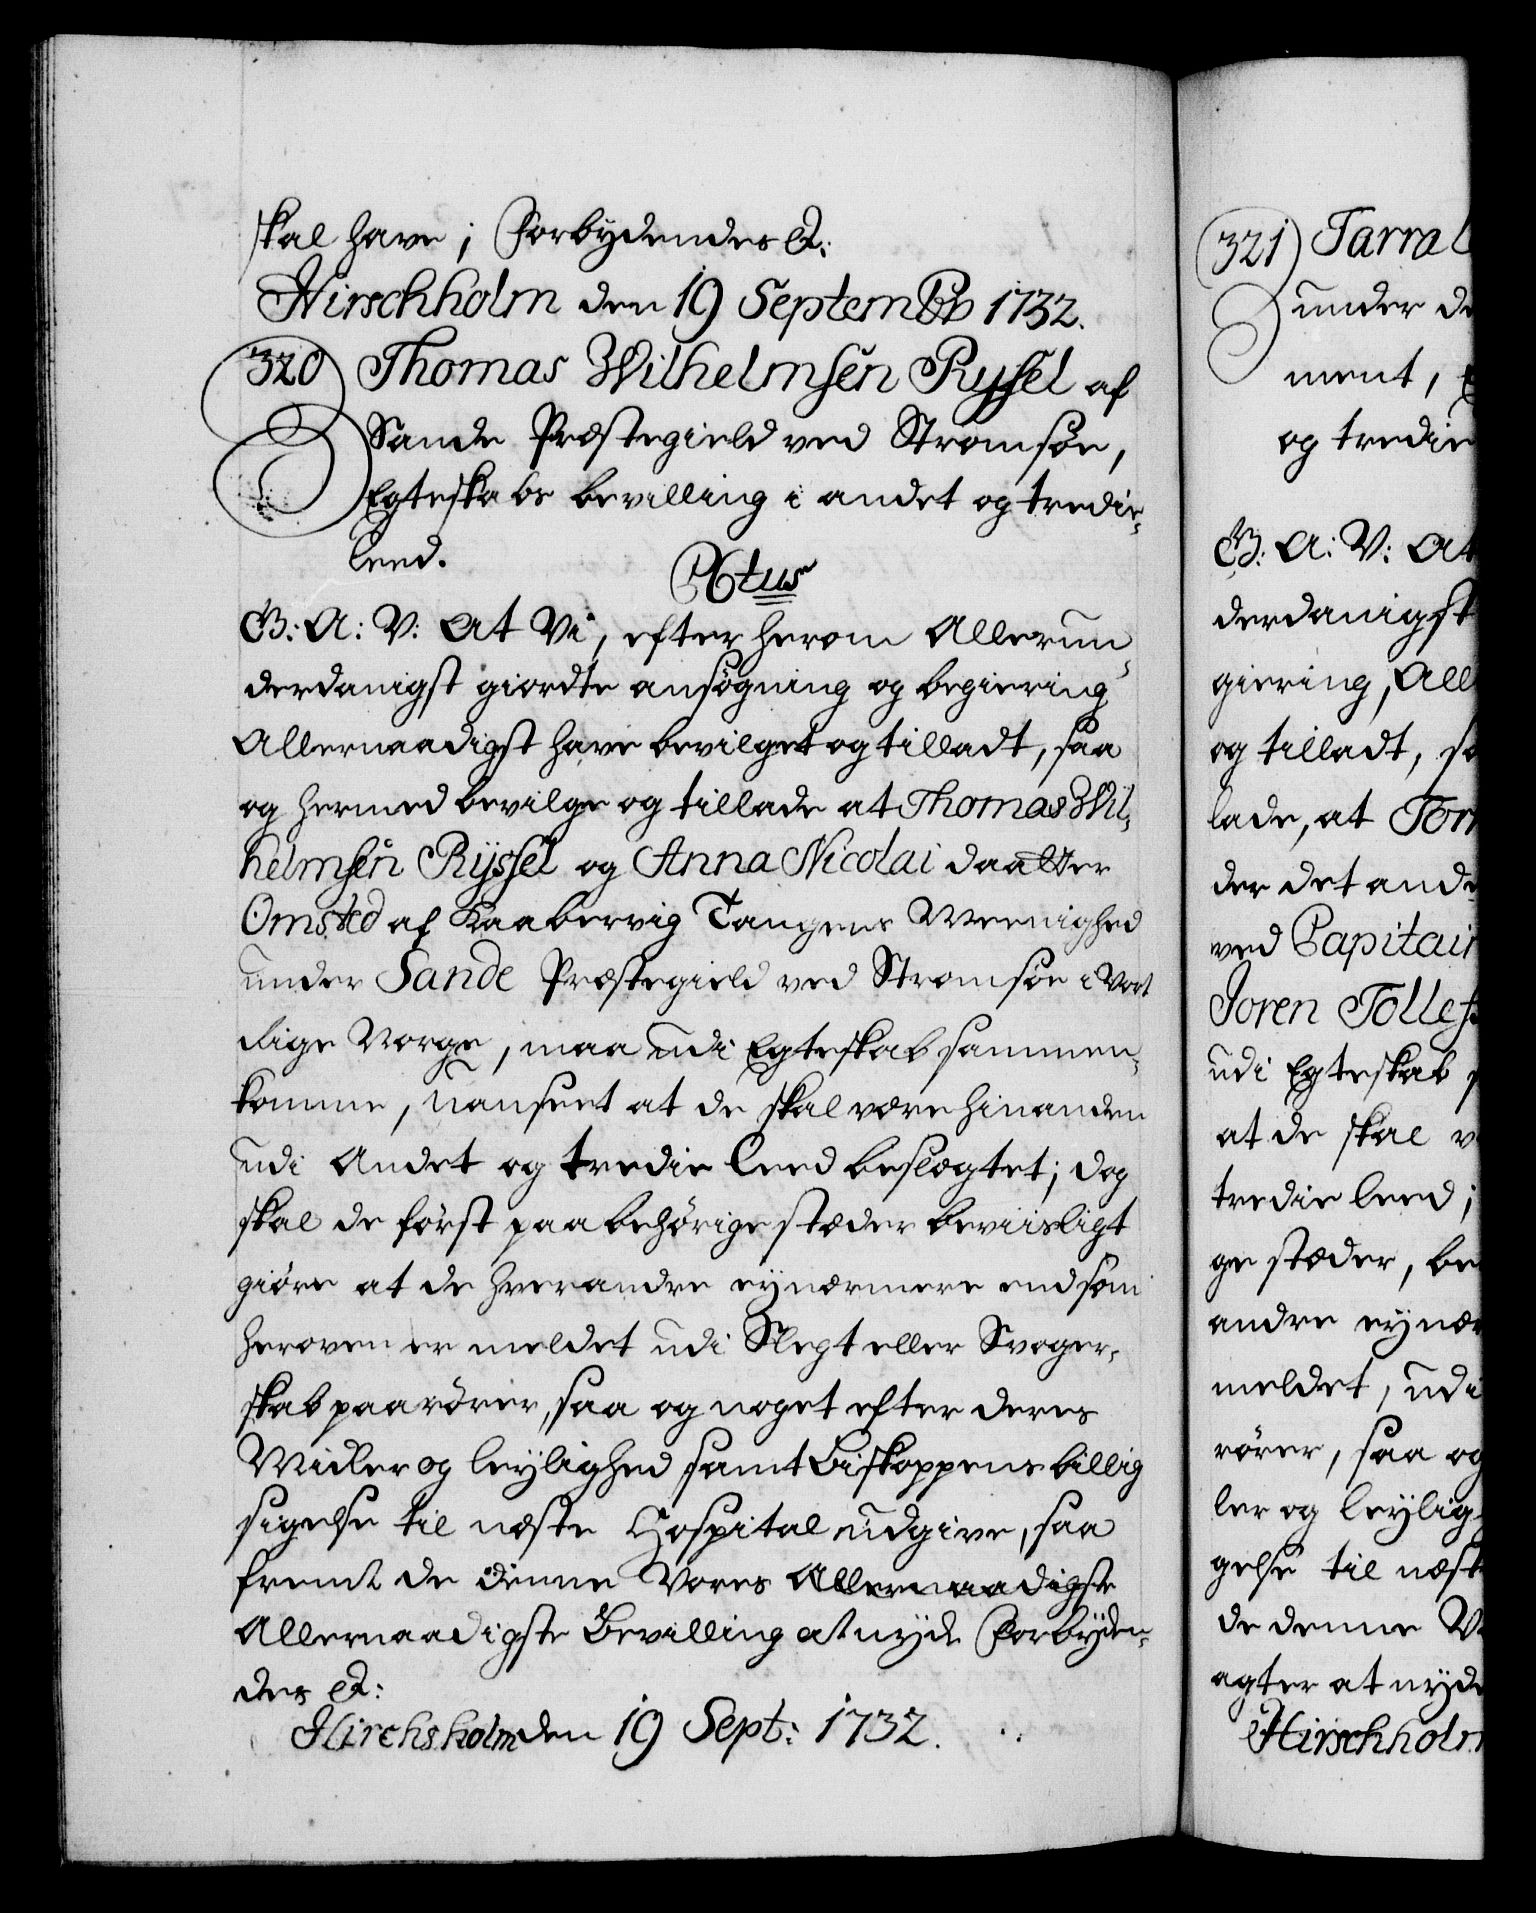 skal have; Forbydendes &:
Hirschholm den 19 Septembr 1732.
320 Thomas Wilhelmsen Ryssel af
Sande Præstegield ved Strømsøe,
Egteskabs bevilling i andet og tredie-
leed.
G: A: V: At Vi, efter herom Allerun-
derdanigst giordte ansøgning og begiering
Allernaadigst have bevilget og tilladt, saa
og hermed bevilge og tillade at Thomas Wil-
helmsen Ryssel og Anna Nicolai daatter
Omsted af Kaabervig Tangens Meenighed
under Sande Præstegield ved Strømsøe i Vort
Rige Norge, maa udi Egteskab sammen-
komme, uanseet at de skal være hinanden
udi Andet og tredie leed beslægtet; dog
skal de først paa behørige stæder beviisligt
giøre at de hverandre ey nærmere end som
heroven er meldet udi Slegt eller Svoger-
skab paarører, saa og noget efter deres
Midler og leylighed samt Biskoppens billig
sigelse til næste Hospital udgive, saa
fremt de denne Vores Allernaadigste
Allernaadigste Bevilling at nyde Forbyden-
des &:
Hirchsholm den 19 Sept: 1732.
321 Tarral
under de
ment, E
og tredie
G: A: V: At
derdanigst
giering, All
og tilladt, sa
lade, at Torr
der det ande
ved Capitain
Joren Tollefs
udi Egteskab s
at de skal v
tredie leed;
ge stæder, be
andre ey nær
meldet, udi
rører, saa og
ler og leylig-
gelse til næst
de denne V
agter at nyde
Hirschholm